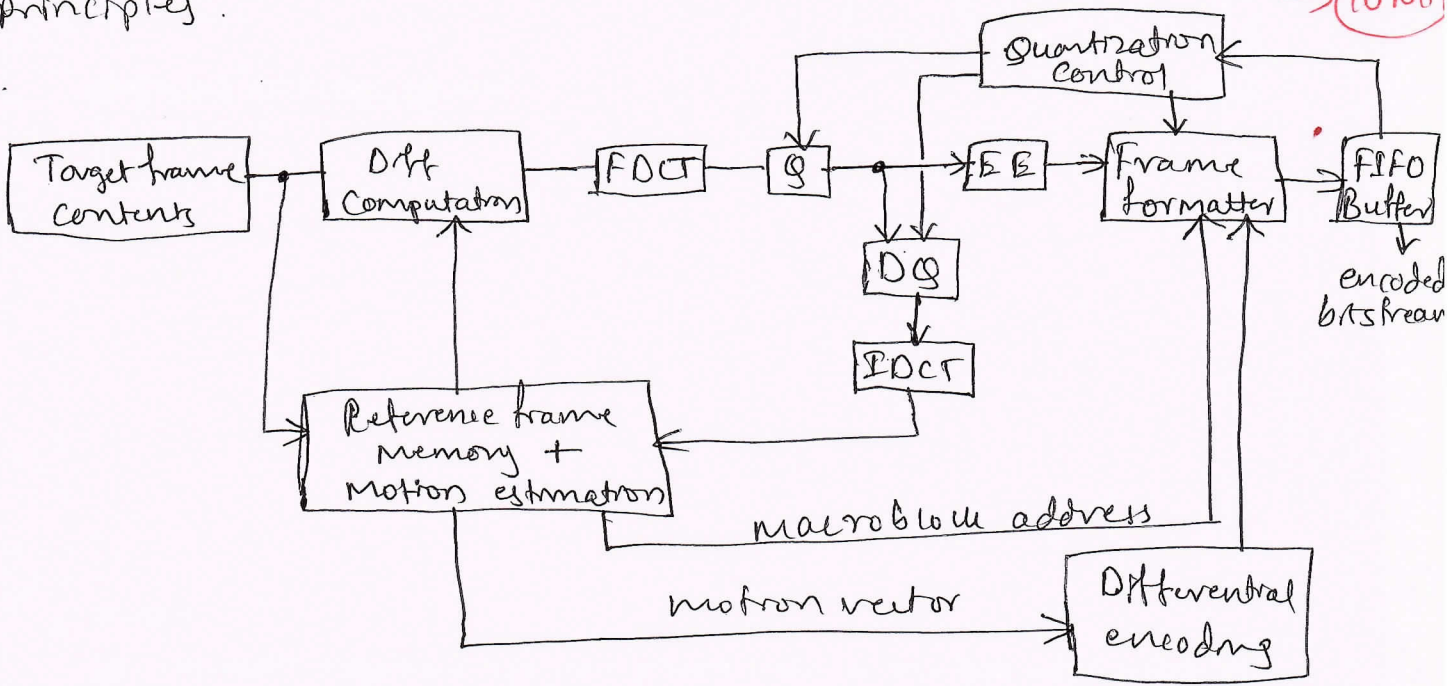 principles.
Quantization
Control
Target frame
Contents
Diff
Computation
FDCT
Q
EE
Frame
formatter
FIFO
Buffer
encoded
DQ
IDCT
Reference frame
Memory +
Motion estimation
macroblock address
motion vector
Differential
encoding